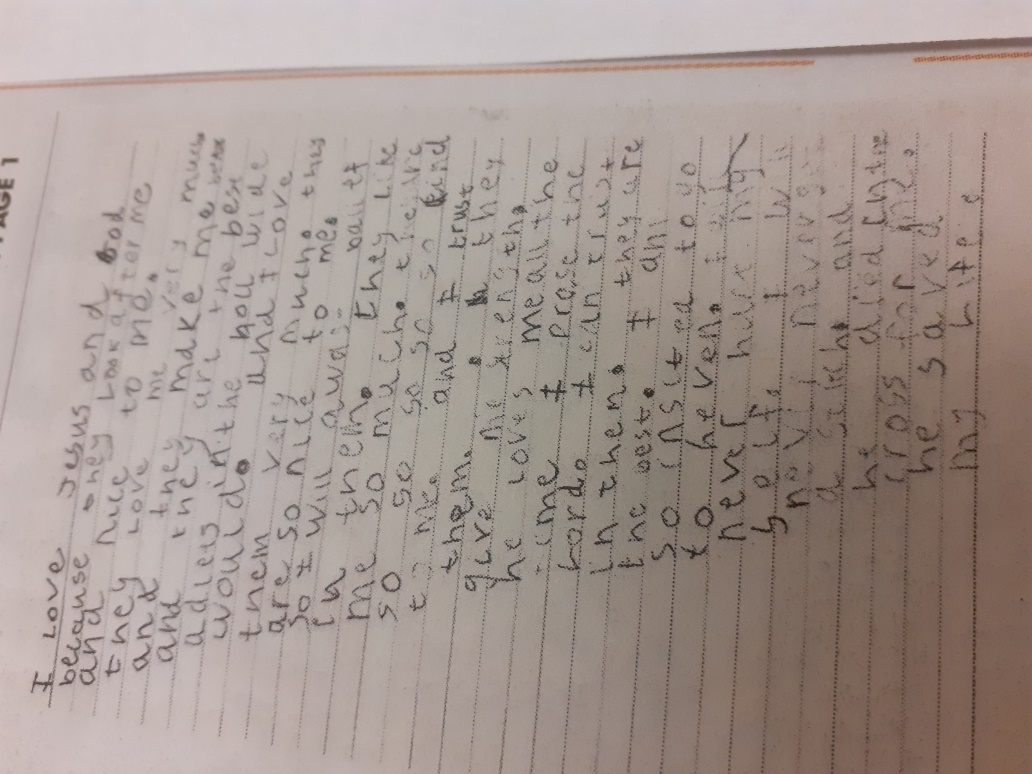 PAGE 1
I Love Jesus and God
because they Look after me
and nice to me.
they Love me very much
and they make me
and they are the best
adless in the holl wide
would. and I Love
them very much. they
are so nice to me.
So I will awas
in them. they like
me so much.
so so so so so kind
to me. and I trust
them. they
give me strength.
he loves me all the
time I prase the
Lord. I can trust
in them. they are
the best. I am
so insited to go
to heven. I will
never have my
self. I will
he died in the
cross for me.
he saved
my Life.